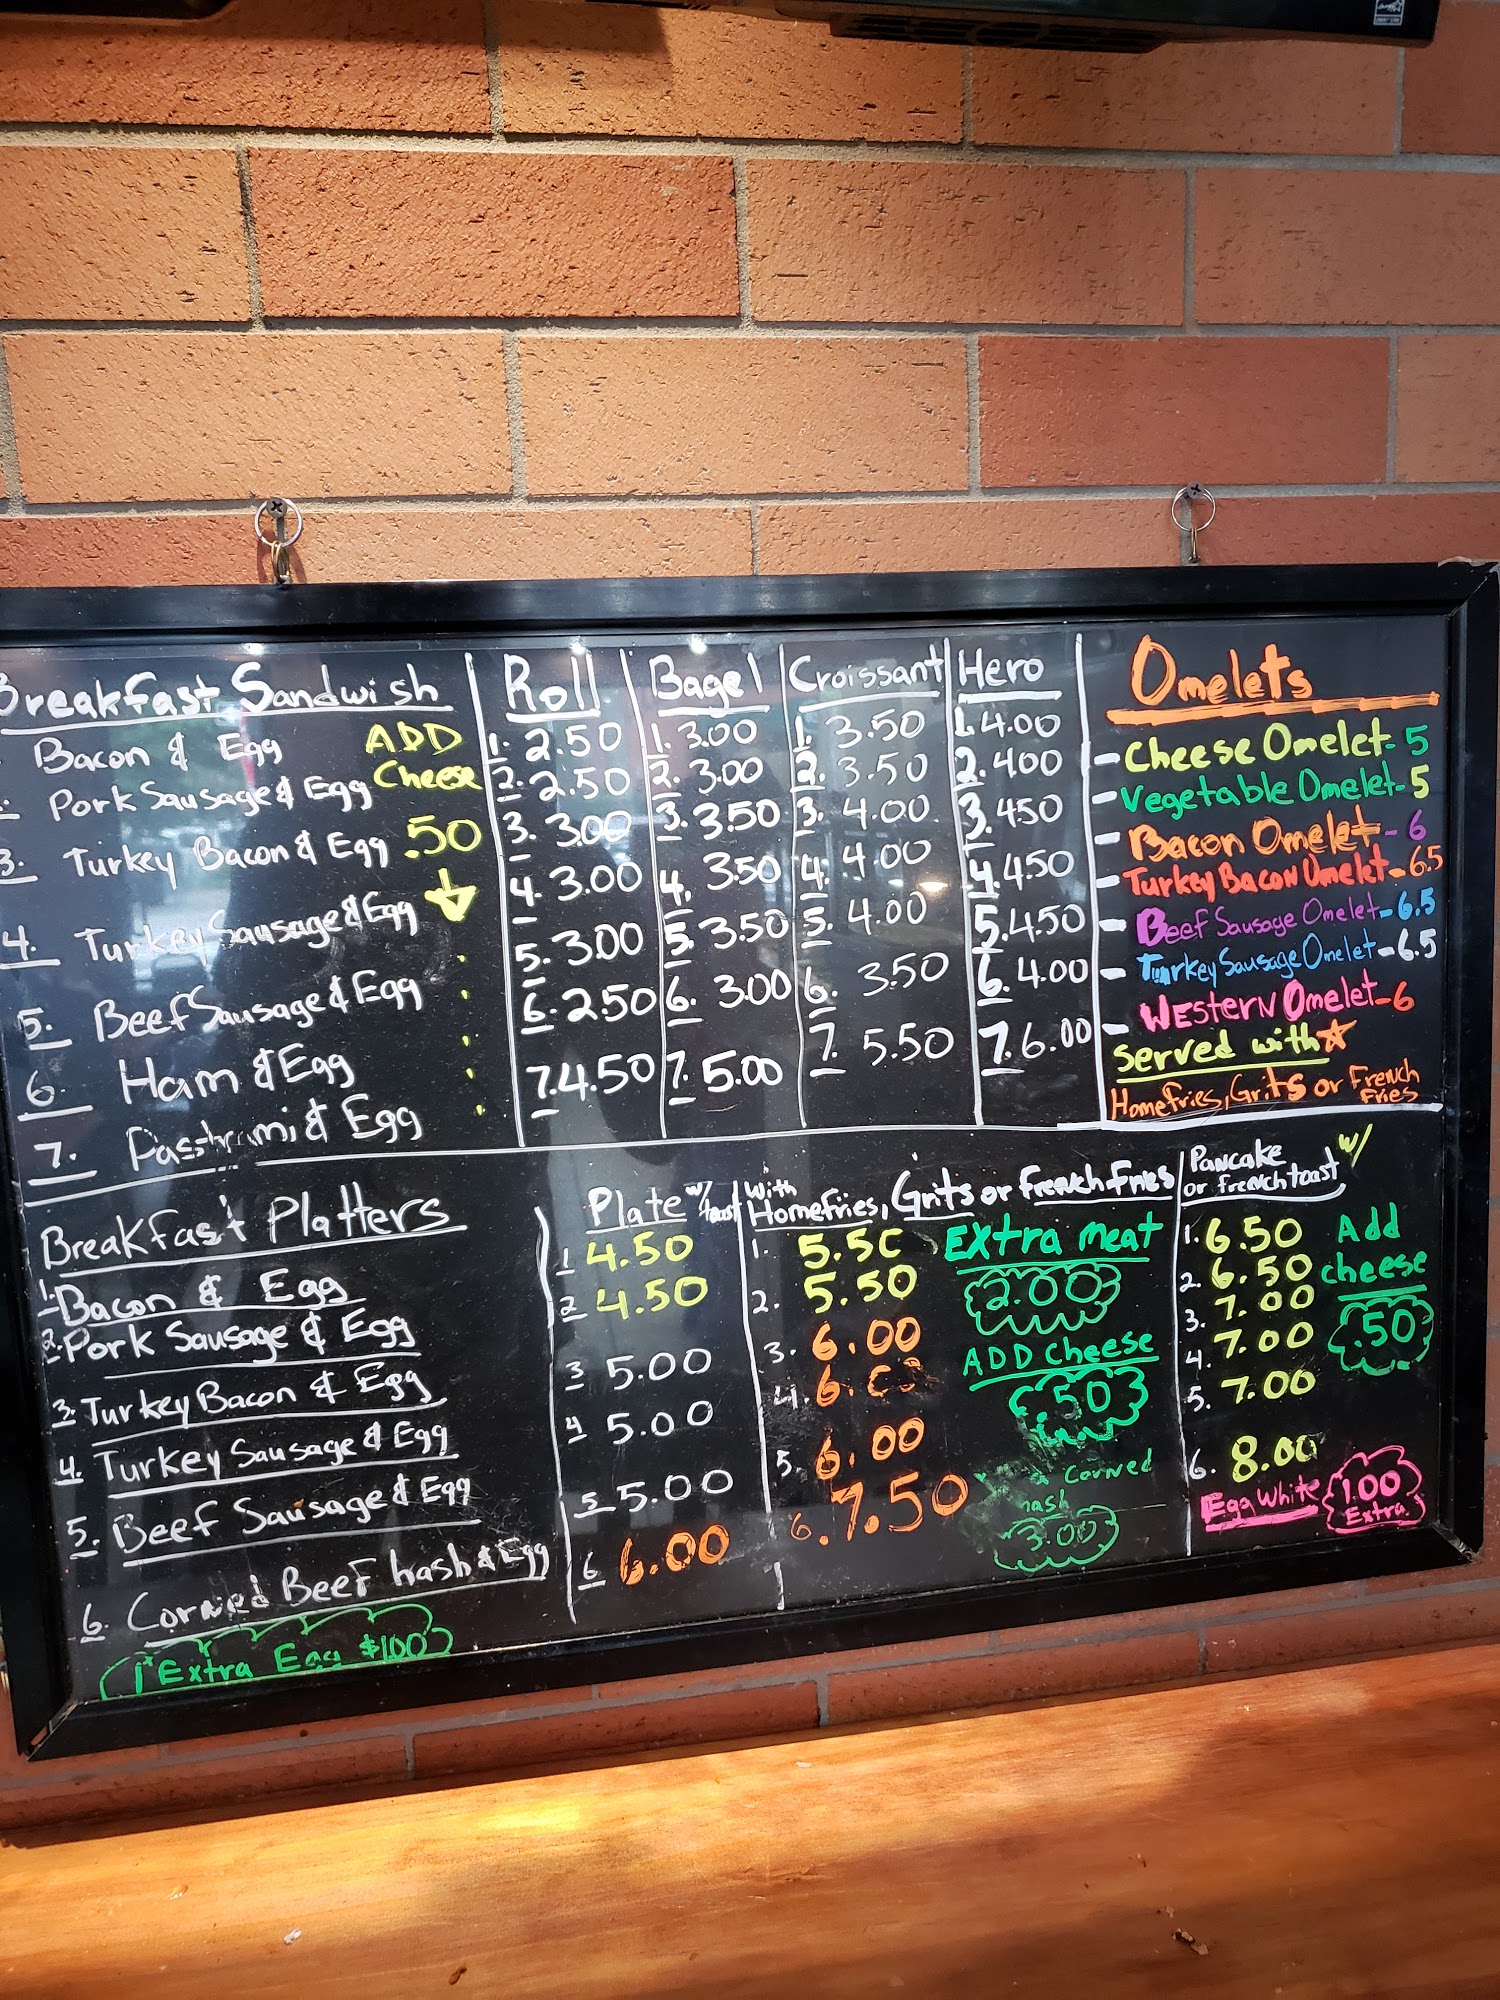 Breakfast Sandwish
Bacon & Egg
Pork Sausage & Egg
3. Turkey Bacon & Egg
4. Turkey Sausage & Egg
5. Beef Sausage & Egg
6. Ham & Egg
7. Passtrami & Egg
ADD
Cheese
.50
Roll
1. 2.50
2. 2.50
3. 3.00
4. 3.00
5. 3.00
6. 2.50
7. 4.50
Bagel
1. 3.00
2. 3.00
3. 3.50
4. 3.50
5. 3.50
6. 3.00
7. 5.00
Croissant
1. 3.50
2. 3.50
3. 4.00
4. 4.00
5. 4.00
6. 3.50
7. 5.50
Hero
1. 4.00
2. 400
3. 450
4. 4.50
5. 4.50
6. 4.00
7. 6.00
Omelets
- Cheese Omelet - 5
- Vegetable Omelet - 5
- Bacon Omelet - 6
- Turkey Bacon Omelet - 6.5
- Beef Sausage Omelet - 6.5
- Turkey Sausage Omelet - 6.5
- Western Omelet - 6
Served with
Homefries, Grits or French
Fries
Breakfast Platters
1. Bacon & Egg
2. Pork Sausage & Egg
3. Turkey Bacon & Egg
4. Turkey Sausage & Egg
5. Beef Sausage & Egg
6. Corned Beef hash & Egg
Extra Egg $1.00
Plate w/ toast
1 4.50
2 4.50
3 5.00
4 5.00
5 5.00
6 6.00
with
Homefries, Grits or French Fries
1. 5.50
2. 5.50
3. 6.00
4. 6.
5. 6.00
6. 7.50
Extra meat
2.00
ADD Cheese
.50
Corned
hash
3.00
Pancake w/
or frenchtoast
1. 6.50
2. 6.50
3. 7.00
4. 7.00
5. 7.00
6. 8.00
Add
cheese
.50
Egg White
1.00
Extra